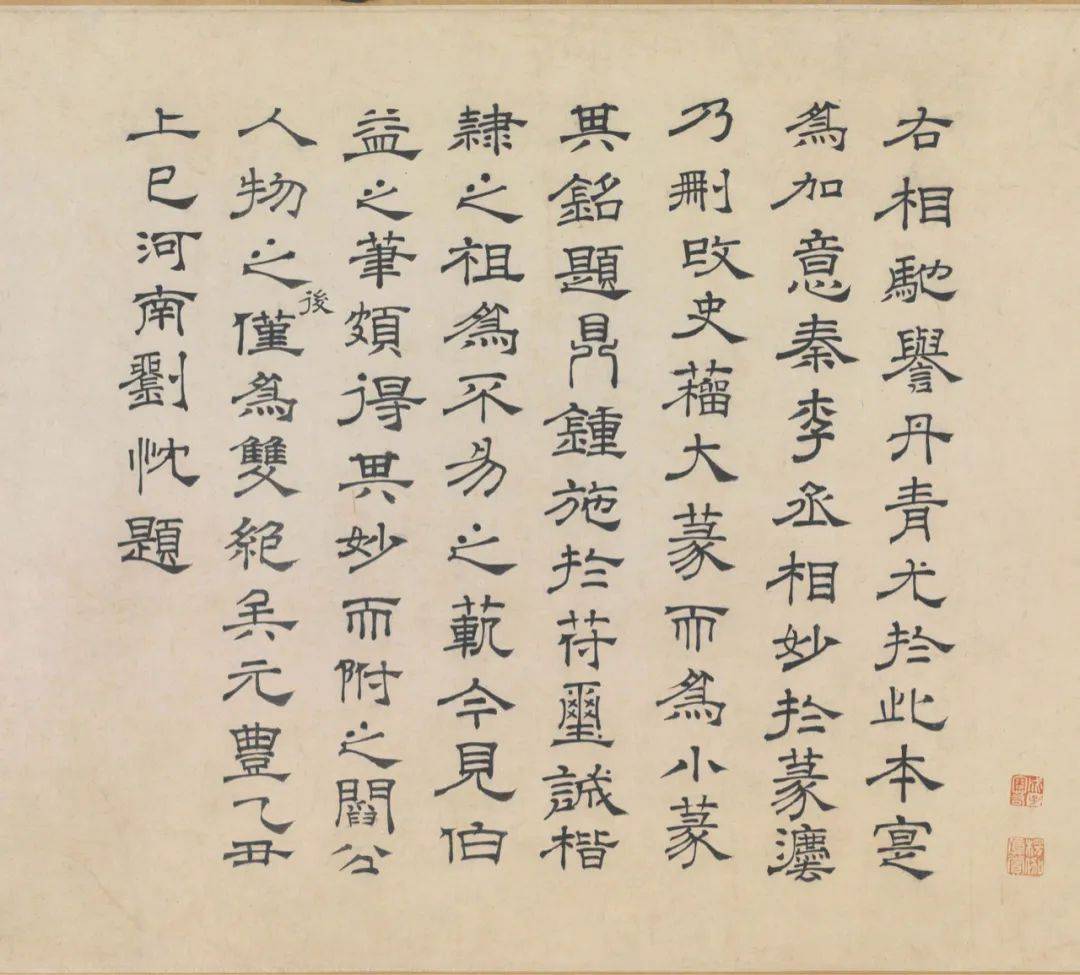 右相馳譽丹青尤於此本寔
爲加意秦李丞相妙於篆灋
乃刪改史籀大篆而爲小篆
其銘題鼎鍾施於苻璽誠楷
隸之祖爲不易之範今見伯
益之筆頗得其妙而附之閻公
人物之後僅爲雙絕矣元豐乙丑
上巳河南劉忱題